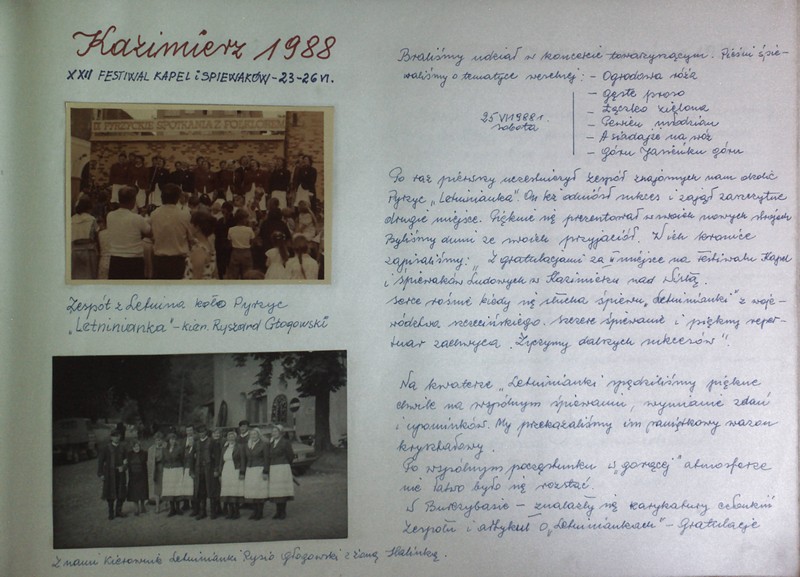 Kazimierz 1988
XXII FESTIWAL KAPEL i ŚPIEWAKÓW - 23-26 VI.
IX PYRZYCKIE SPOTKANIA Z FOLKLOREM
Zespół z Letnina koło Pyrzyc
„Letninianka" - kier. Ryszard Głogowski
Z nami Kierownik Letninianki Rysio Głogowski z żoną Halinką.
Braliśmy udział w koncercie towarzyszącym. Pieśni śpie-
waliśmy o tematyce weselnej: - Ogrodowa róża
- Gęste proso
- Łączko zielona
25 VI 1988 r.
sobota
- Pewien młodzian
- A siadajże na wóz
- Góru Jasieńku góru
Po raz pierwszy uczestniczył zespół znajomych nam okolic
Pyrzyc „Letninianka". On też odniósł sukces i zajął zaszczytne
drugie miejsce. Pięknie się prezentował w swoich nowych strojach
Byliśmy dumni ze swoich przyjaciół. W ich kronice
zapisaliśmy: „Z gratulacjami za II miejsce na Festiwalu Kapel
i śpiewaków Ludowych w Kazimierzu nad Wisłą.
serce rośnie kiedy się słucha śpiewu „Letninianki" z woje-
wództwa szczecińskiego. szczere śpiewanie i piękny reper-
tuar zachwyca. Życzymy dalszych sukcesów".
Na kwaterze „Letninianki spędziliśmy piękne
chwile na wspólnym śpiewaniu, wymianie zdań
i upominków. My przekazaliśmy im pamiątkowy wazon
kryształowy.
Po wspólnym poczęstunku w „gorącej" atmosferze
nie łatwo było się rozstać.
W - znalazły się karykatury członkiń
zespołu i artykuł o „Letniniankach" - Gratulacje